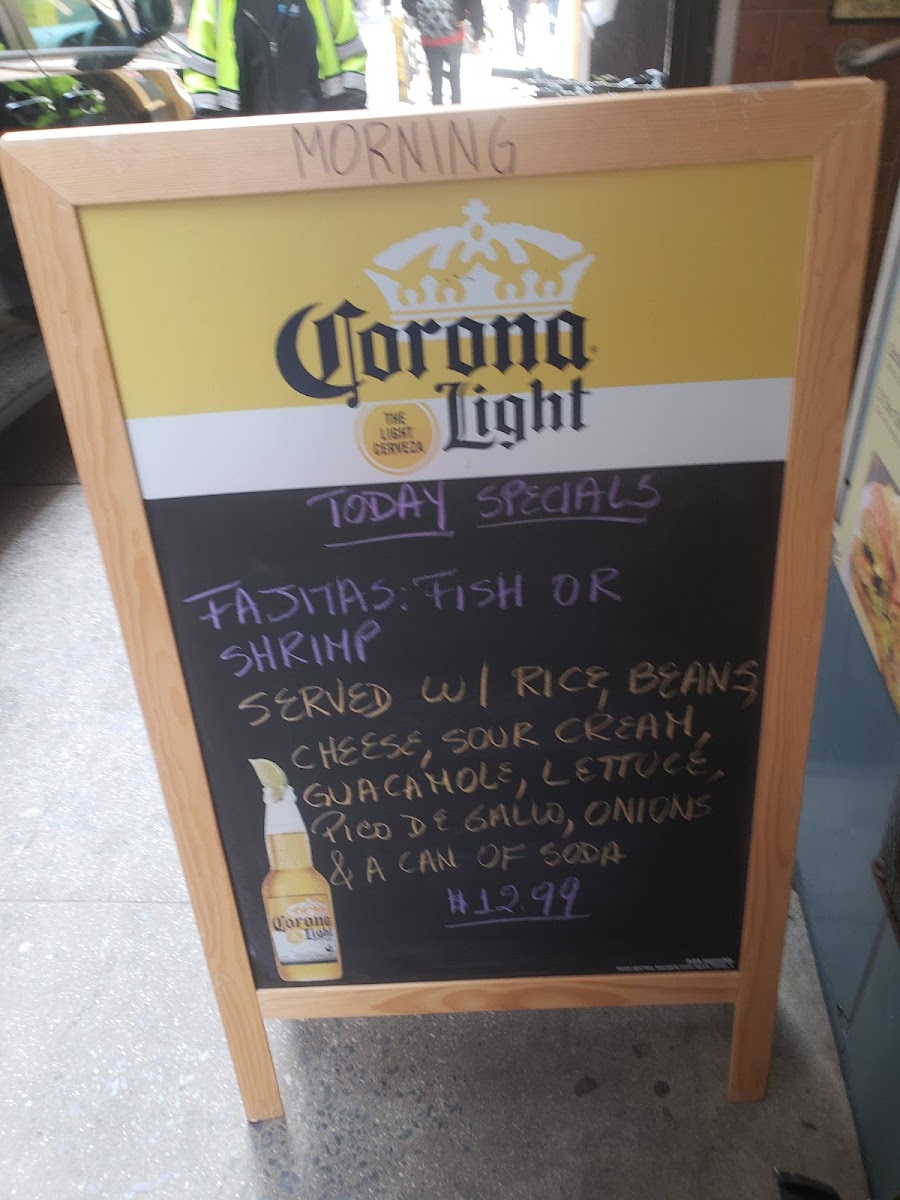 MORNING
Corona
Light
THE
LIGHT
CERVEZA
TODAY SPECIALS
FAJITAS: FISH OR
SHRIMP
SERVED W/ RICE, BEANS,
CHEESE, SOUR CREAM,
GUACAMOLE, LETTUCE,
PICO DE GALLO, ONIONS
& A CAN OF SODA
$12.99
Corona
Light